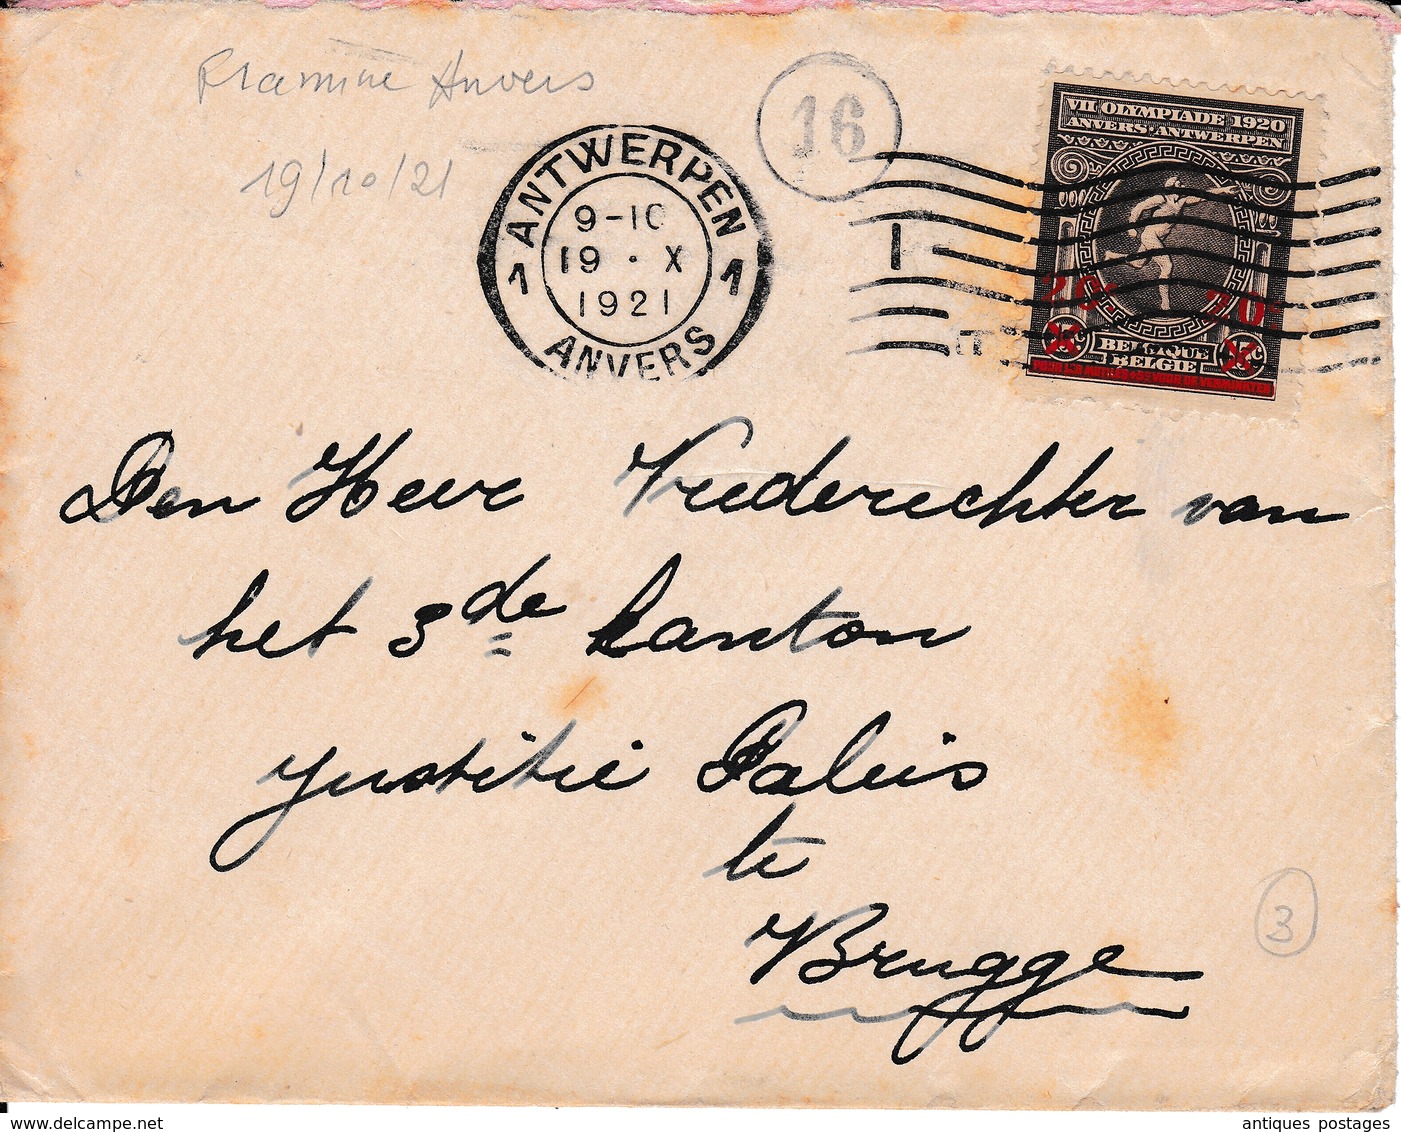 Flamme Anvers
19/10/21
16
ANTWERPEN
9-10
19 · X
1921
1 1
ANVERS
VII OLYMPIADE 1920
ANVERS·ANTWERPEN
20c 20c
15c 15c
BELGIQUE
BELGIË
Den Heer Vrederechter van
het 3de kanton
Justitie Paleis
te
Brugge
3
www.delcampe.net
antiques postages